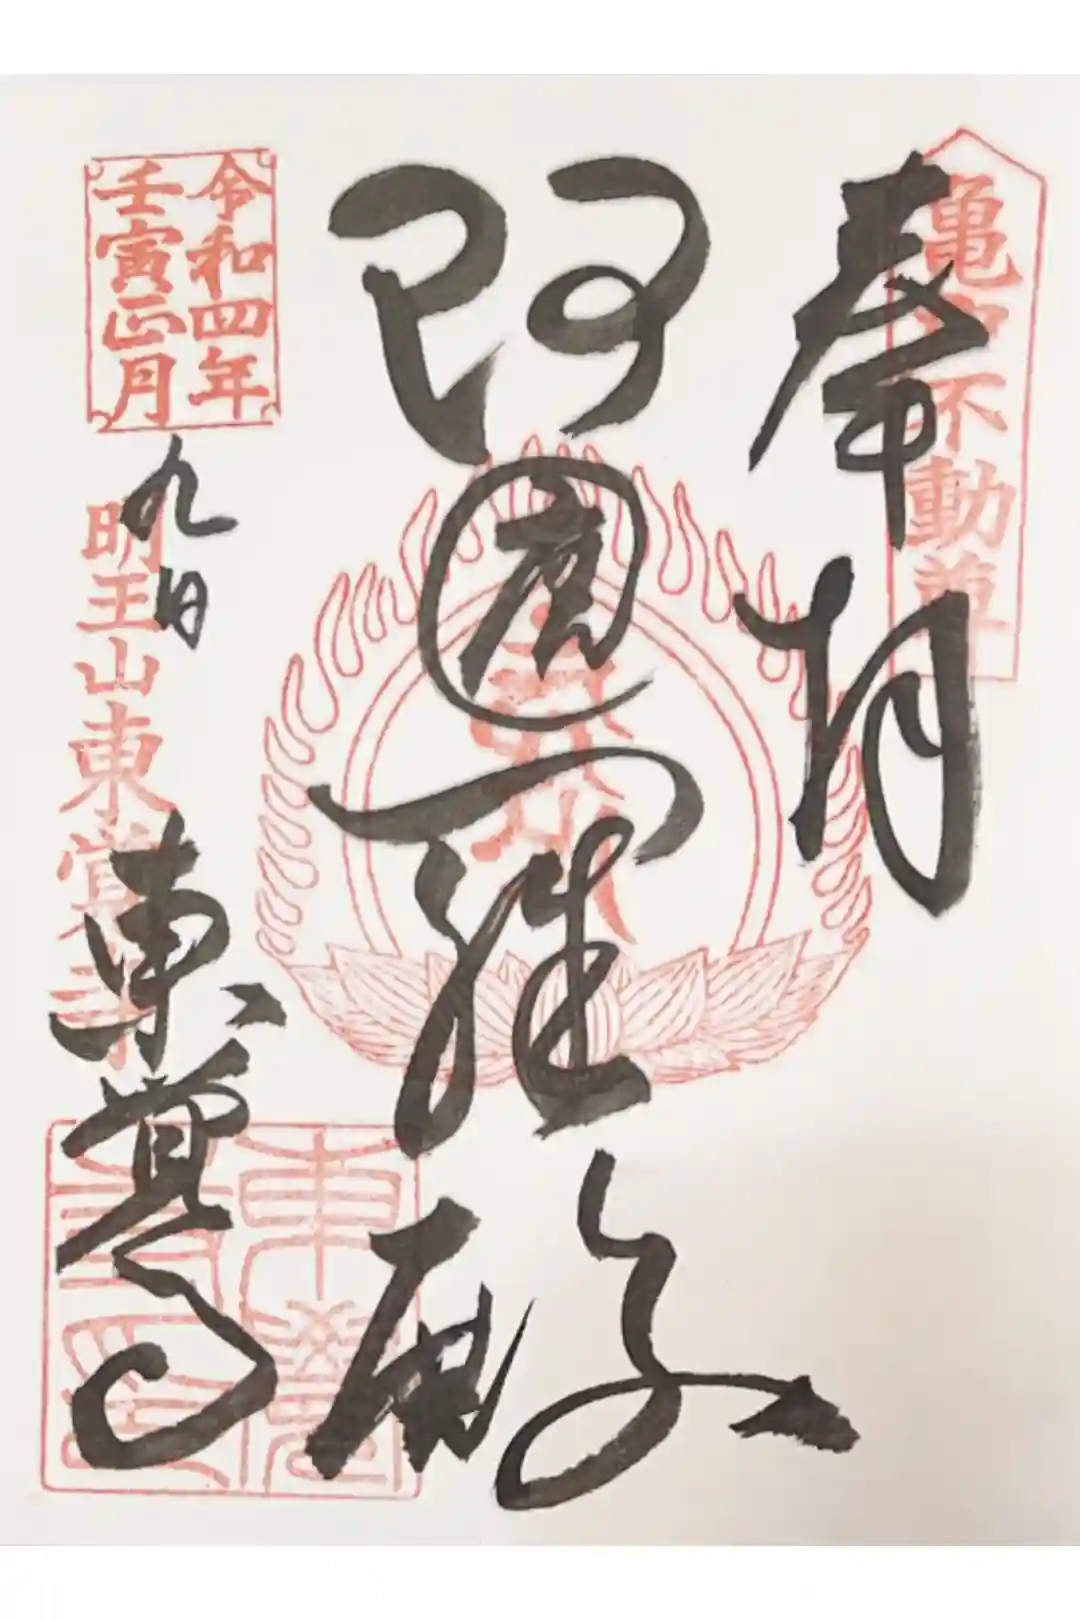 亀戸不動尊
奉拝
阿遮羅殿
令和四年
壬寅正月
九日
明王山東覚寺
東覚寺
東覺
寺印